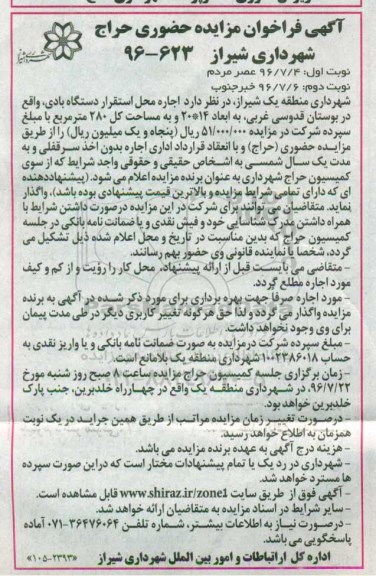 آگهی فراخوان مزایده حضوری حراج
شهرداری شیراز ۶۲۳-۹۶
نوبت اول: ۹۶/۷/۴ عصر مردم
نوبت دوم: ۹۶/۷/۶ خبرجنوب
شهرداری منطقه یک شیراز، در نظر دارد اجاره محل استقرار دستگاه بادی، واقع
در بوستان قدوسی غربی، به ابعاد ۱۴*۲۰ و به مساحت کل ۲۸۰ مترمربع با مبلغ
سپرده شرکت در مزایده ۵۱/۰۰۰/۰۰۰ ریال (پنجاه و یک میلیون ریال) را از طریق
مزایده حضوری (حراج) و با انعقاد قرارداد اداری اجاره بدون اخذ سرقفلی و به
مدت یک سال شمسی به اشخاص حقیقی و حقوقی واجد شرایط که از سوی
کمیسیون حراج شهرداری به عنوان برنده مزایده اعلام می شود. (پیشنهاددهنده
ای که دارای تمامی شرایط مزایده و بالاترین قیمت پیشنهادی بوده باشد)، واگذار
نماید. متقاضیان می توانند برای شرکت در این مزایده درصورت داشتن شرایط با
همراه داشتن مدرک شناسایی خود و فیش نقدی و یا ضمانت نامه بانکی در جلسه
کمیسیون حراج که بدین مناسبت در تاریخ و محل اعلام شده ذیل تشکیل می
گردد، شخصا یا نماینده قانونی وی حضور بهم رسانند.
- متقاضی می بایست قبل از ارائه پیشنهاد، محل کار را رؤیت و از کم و کیف
مورد اجاره مطلع گردد.
- مورد اجاره صرفا جهت بهره برداری برای مورد ذکر شده در آگهی به برنده
مزایده واگذار می گردد و لذا حق هرگونه تغییر کاربری دیگر در طی مدت پیمان
برای وی وجود نخواهد داشت.
- مبلغ سپرده شرکت درمزایده به صورت ضمانت نامه بانکی و یا واریز نقدی به
حساب ۱۰۰۲۳۸۶۰۱۸ شهرداری منطقه یک بلامانع است.
- زمان برگزاری جلسه کمیسیون حراج مزایده ساعت ۸ صبح روز شنبه مورخ
۹۶/۷/۲۲، در شهرداری منطقه یک واقع در چهارراه خلدبرین، جنب پارک
خلدبرین خواهد بود.
- درصورت تغییر زمان مزایده مراتب از طریق همین جراید در یک نوبت
همزمان به اطلاع خواهد رسید.
- هزینه درج آگهی به عهده برنده مزایده می باشد.
- شهرداری در رد یک یا تمام پیشنهادات مختار است که دراین صورت سپرده
ها مسترد خواهد شد.
- آگهی فوق از طریق سایت www.shiraz.ir/zone1 قابل مشاهده است.
- سایر شرایط در اسناد مزایده به متقاضیان ارائه خواهد شد.
- درصورت نیاز به اطلاعات بیشتر، شماره تلفن ۳۶۴۷۶۰۶۴-۰۷۱ آماده
پاسخگویی می باشد.
اداره کل ارتباطات و امور بین الملل شهرداری شیراز «۱۰۵-۲۳۹۳»